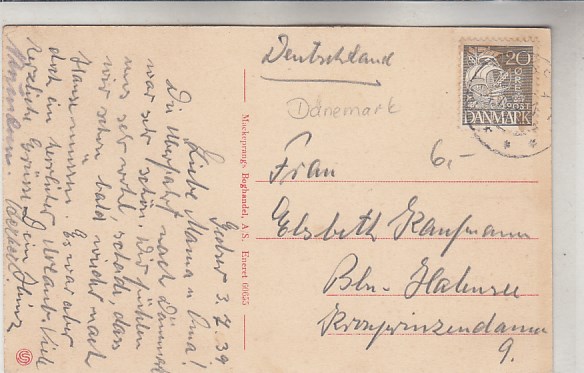 Deutschland
Dänemark
20
POST
DANMARK
6,-
Frau
Elsbeth Kaufmann
Bln-Halensee
Kronprinzendamm
9.
Mackeprangs Boghandel, A.S. Eneret 60655
3.7.39
Liebe Mama u Oma!
Die Überfahrt nach Dänemark
war sehr schön. Wir fühlen
uns sehr wohl, schade dass
wir schon bald wieder nach
Hause müssen. Es war aber
doch ein herrlicher Urlaub. Viele
herzliche Grüsse Dein Heinz